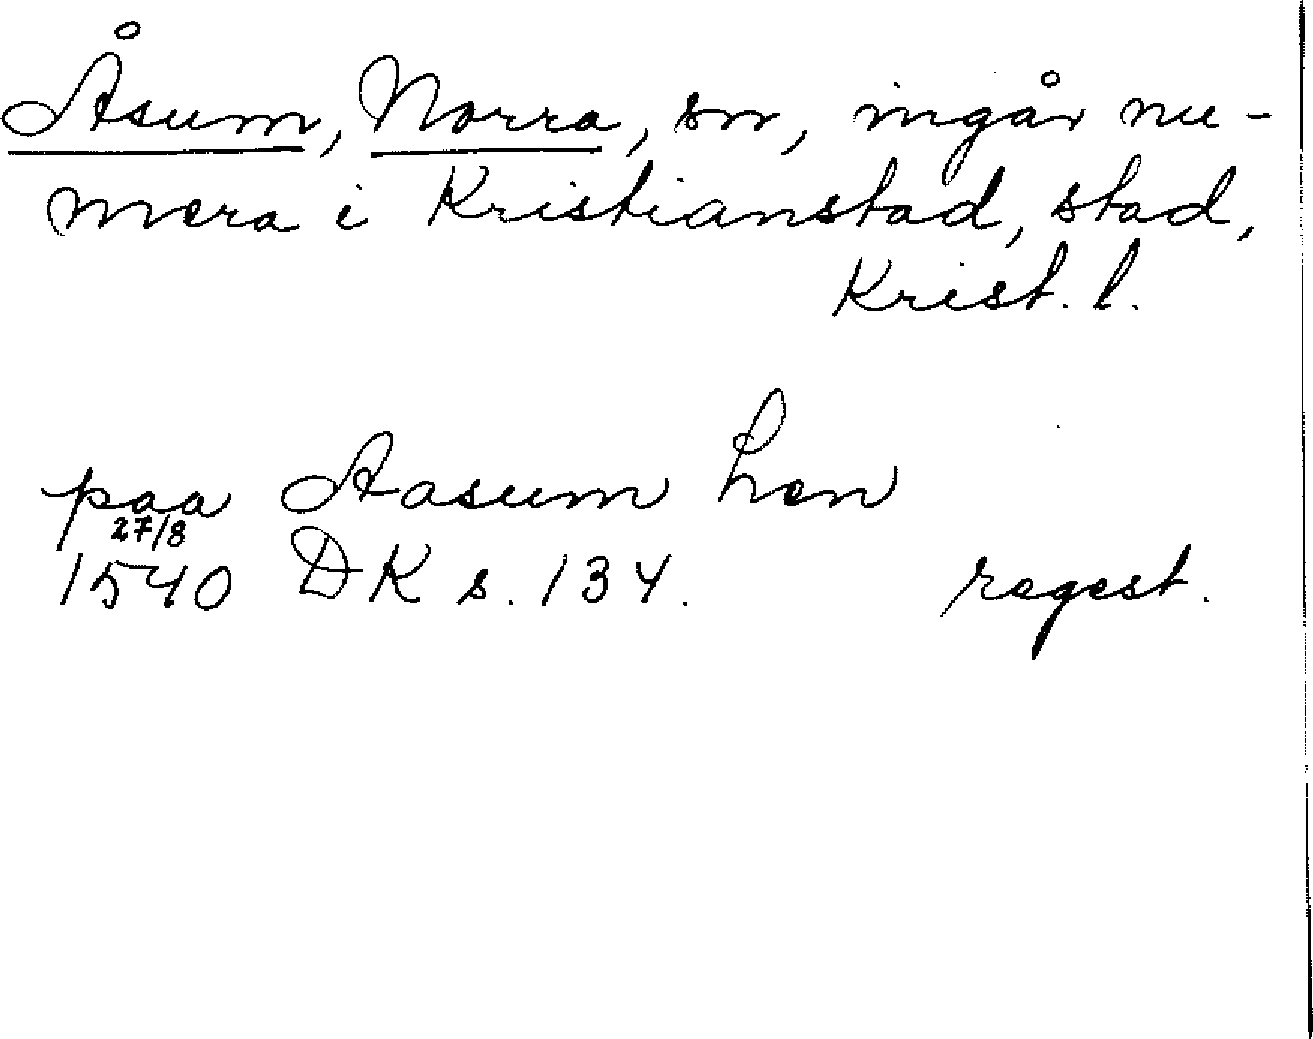 Åsum, Norra, sn, ingår nu-
mera i Kristianstad, stad,
Krist. l.
paa Aasum Len
27/8
1540 DK s. 134. regest.